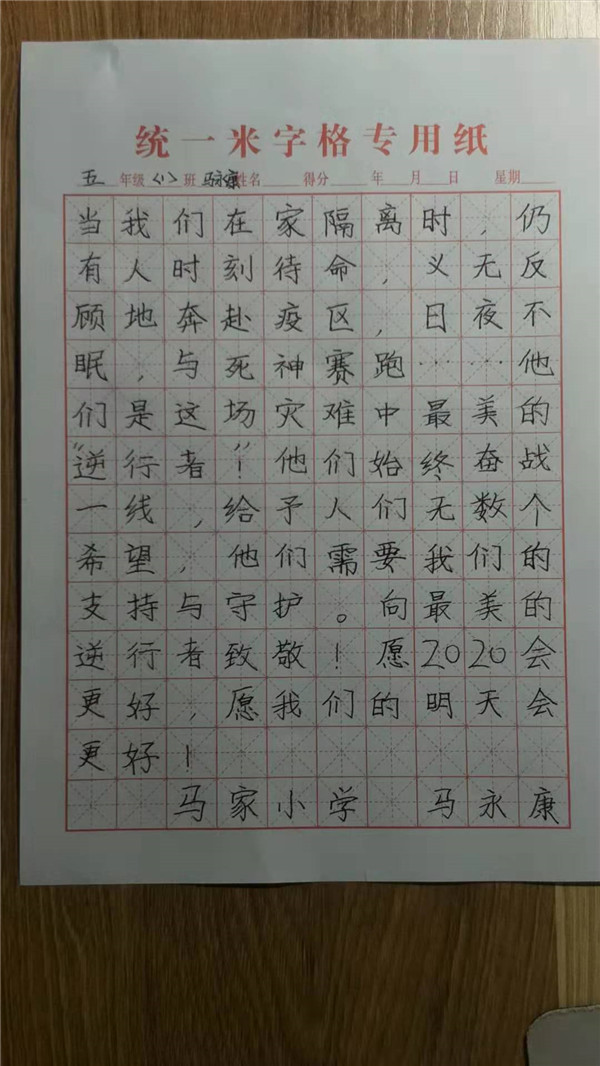 统一米字格专用纸
五 年级 <1> 班 马永康 姓名 得分 年 月 日 星期
当我们在家隔离时，仍
有人时刻待命，义无反
顾地奔赴疫区，日夜不
眠，与死神赛跑……他
们是这场灾难中最美的
“逆行者”！他们始终奋战
一线，给予人们无数个
希望，他们需要我们的
支持与守护。向最美的
逆行者致敬！愿2020会
更好，愿我们的明天会
更好！
马家小学 马永康